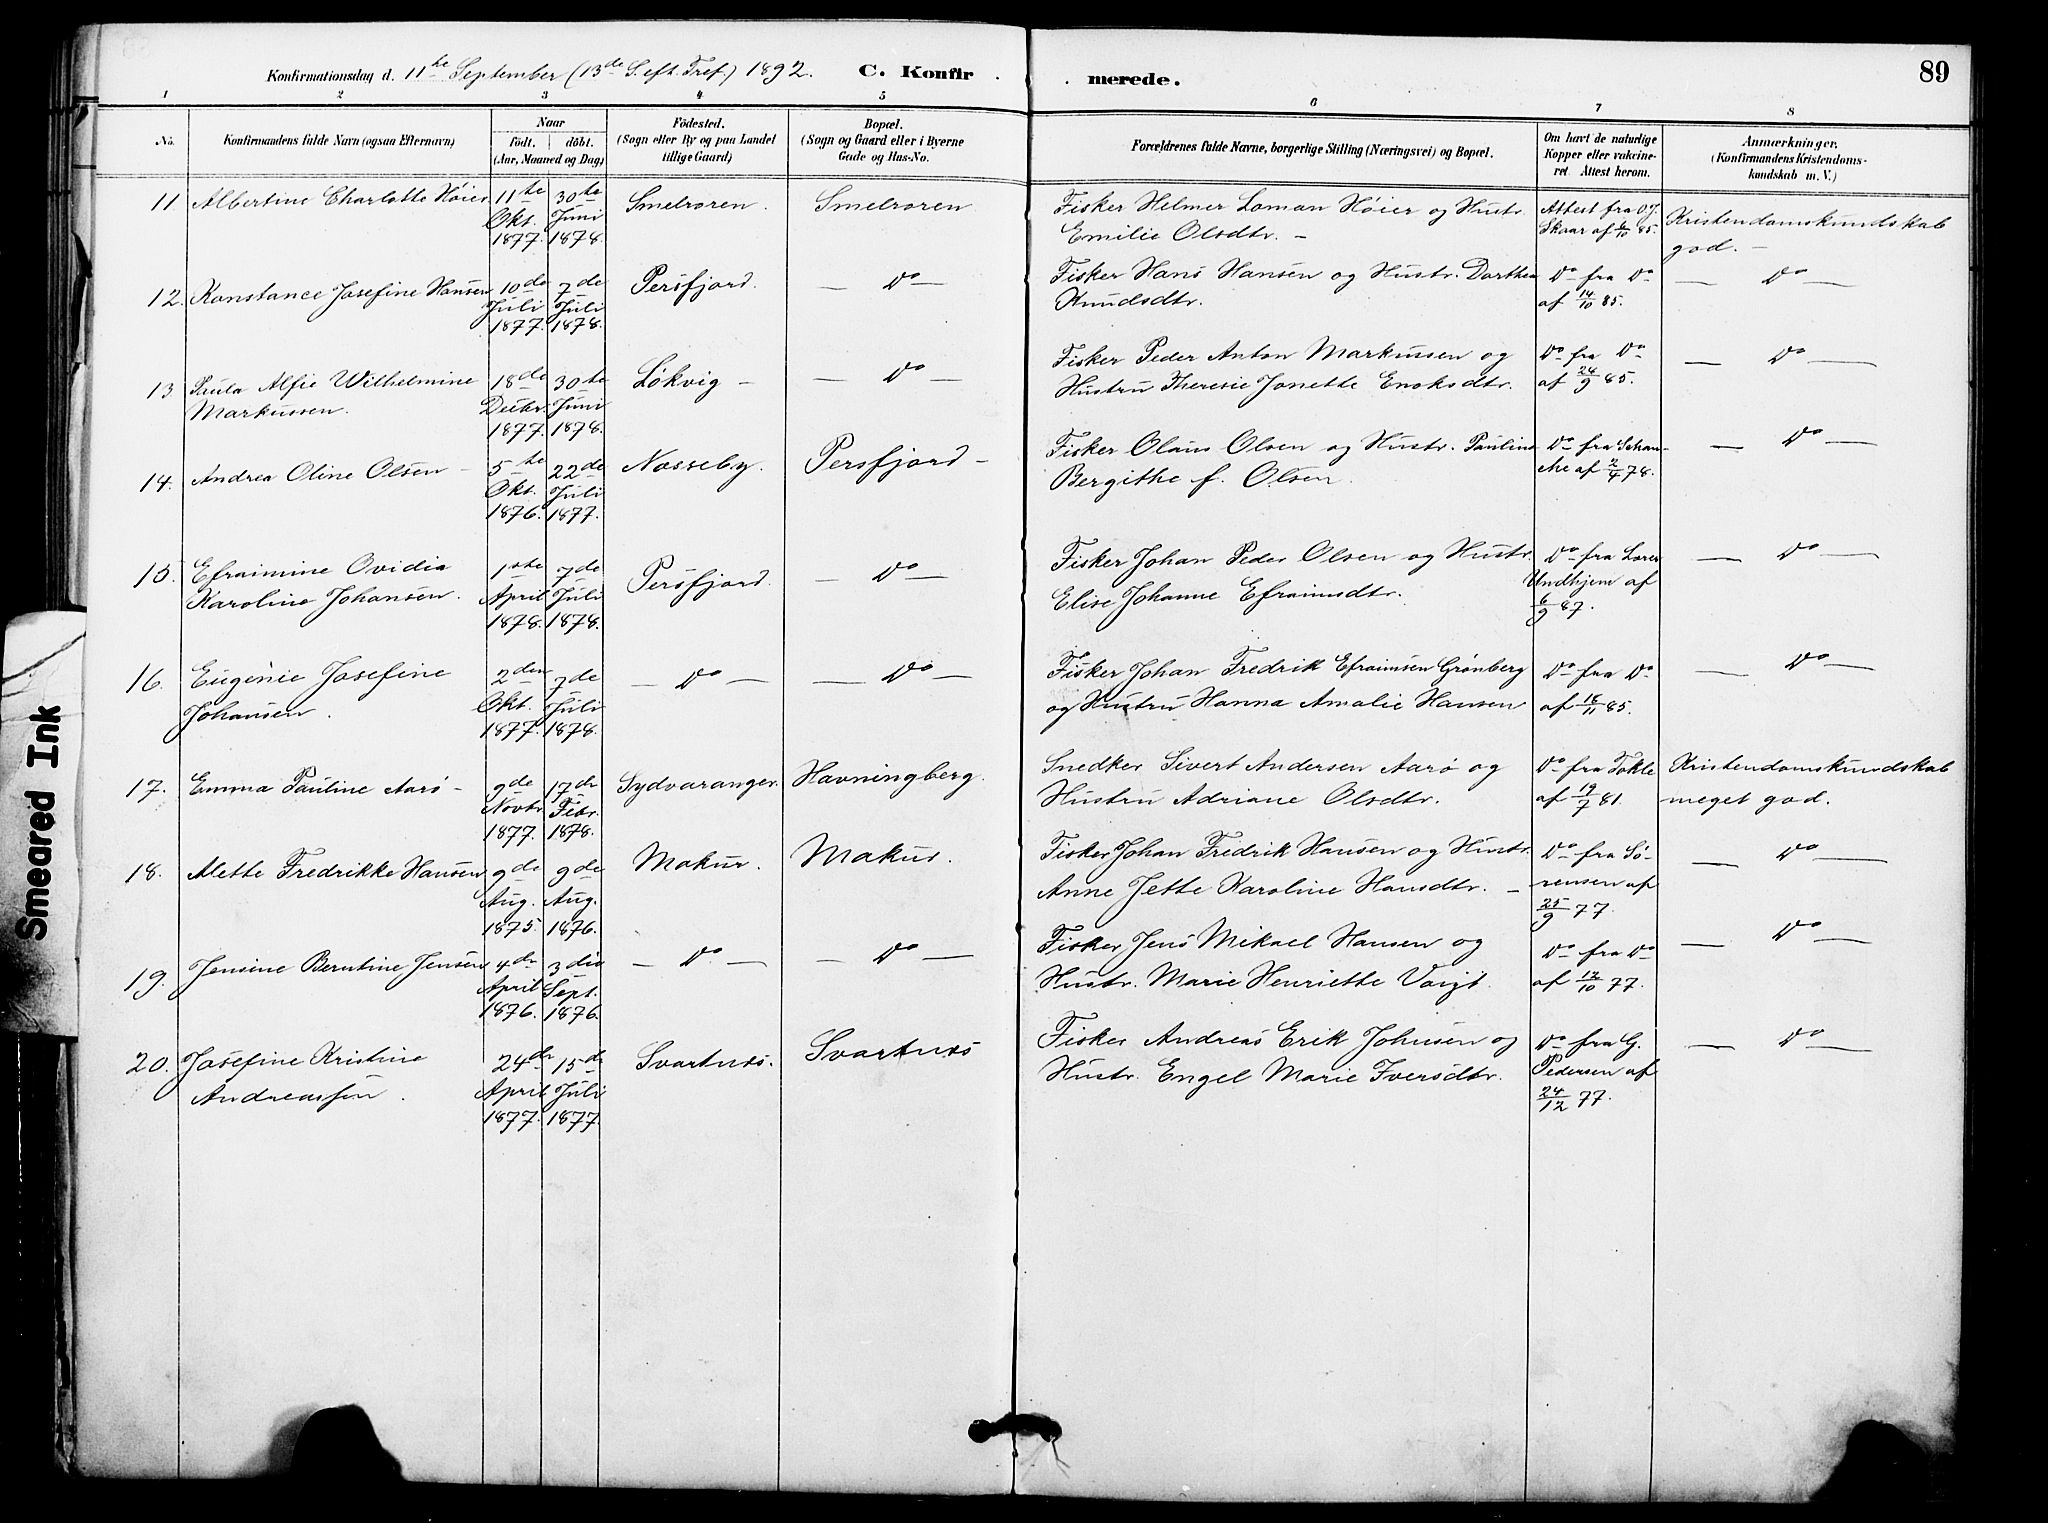 Konfirmationsdag d. 11te September (13de S. eft. Tref.) 1892. C. Konfir merede. 89
1 2 3 4 5 6 7 8
No. Konfirmandens fulde Navn (ogsaa Efternavn) Naar født. døbt. (Aar, Maaned og Dag) Fødested. (Sogn eller By og paa Landet tillige Gaard) Bopæl. (Sogn og Gaard eller i Byerne Gade og Hus-No. Forældrenes fulde Navne, borgerlige Stilling (Næringsvei) og Bopæl. Om havt de naturlige Kopper eller vakcineret. Attest herom. Anmærkninger. (Konfirmandens Kristendomskundskab m. V.)
11. Albertine Charlotte Høier 11te Okt. 1877. 30te Juni 1878. Smelroren. Smelroren Fisker Helmer Loman Høier og Hustr. Emilie Olsdtr. – Attest fra O.J. Skaar af 6/10 85. Kristendomskundskab god. –
12. Konstance Josefine Hansen 10de Juli 1877. 7de Juli 1878. Persfjord. — Do — Fisker Hans Hansen og Hustr. Dorthea Knudsdtr. Do fra Do af 14/10 85. — Do —
13. Paula Alfie Wilhelmine Markussen. 18de Decbr. 1877. 30te Juni 1878. Løkvig – — Do — Fisker Peder Anton Markussen og Hustru Theresie Jonette Enoksdtr. Do fra Do af 24/9 85. — Do —
14. Andrea Oline Olsen – 5te Okt. 1876. 22de Juli 1877. Nasseby. Persfjord – Fisker Olaus Olsen og Hustr. Pauline Bergithe f. Olsen. Do fra Schanche af 2/4 78. — Do —
15. Efraimine Ovidia Karoline Johansen. 1ste April 1878. 7de Juli 1878. Persfjord. — Do — Fisker Johan Peder Olsen og Hustr. Elise Johanne Efraimsdtr. Do fra Lærer Undhjem af 6/9 87. — Do —
16. Eugenie Josefine Johansen. 2den Okt. 1877. 7de Juli 1878. — Do — — Do — Fisker Johan Fredrik Efraimsen Grønberg og Hustru Hanna Amalie Hansen Do fra Do af 18/11 85. — Do —
17. Emma Pauline Aarø – 9de Novbr. 1877. 17de Febr. 1878. Sydvaranger. Havningberg. Snedker Sivert Andersen Aarø og Hustru Adriane Olsdtr. Do fra Tokle af 19/7 81. Kristendomskundskab meget god.
18. Alette Fredrikke Hansen 9de Aug. 1875. 9de Aug. 1876. Makur. Makur. Fisker Johan Fredrik Hansen og Hustr. Anne Jette Karoline Hansdtr. – Do fra Sørensen af 25/9 77. — Do —
19. Jensine Berntine Jensen 4de April 1876. 3die Sept. 1876. — Do — — Do — Fisker Jens Mikael Hansen og Hustr. Marie Henriette Voigt. Do fra Do af 12/10 77. — Do —
20. Josefine Kristine Andreassen. 24de April 1877. 15de Juli 1877. Svartnes. Svartnes Fisker Andreas Erik Johnsen og Hustr. Engel Marie Iversdtr. Do fra G. Pedersen af 24/12 77. — Do —
Smeared Ink